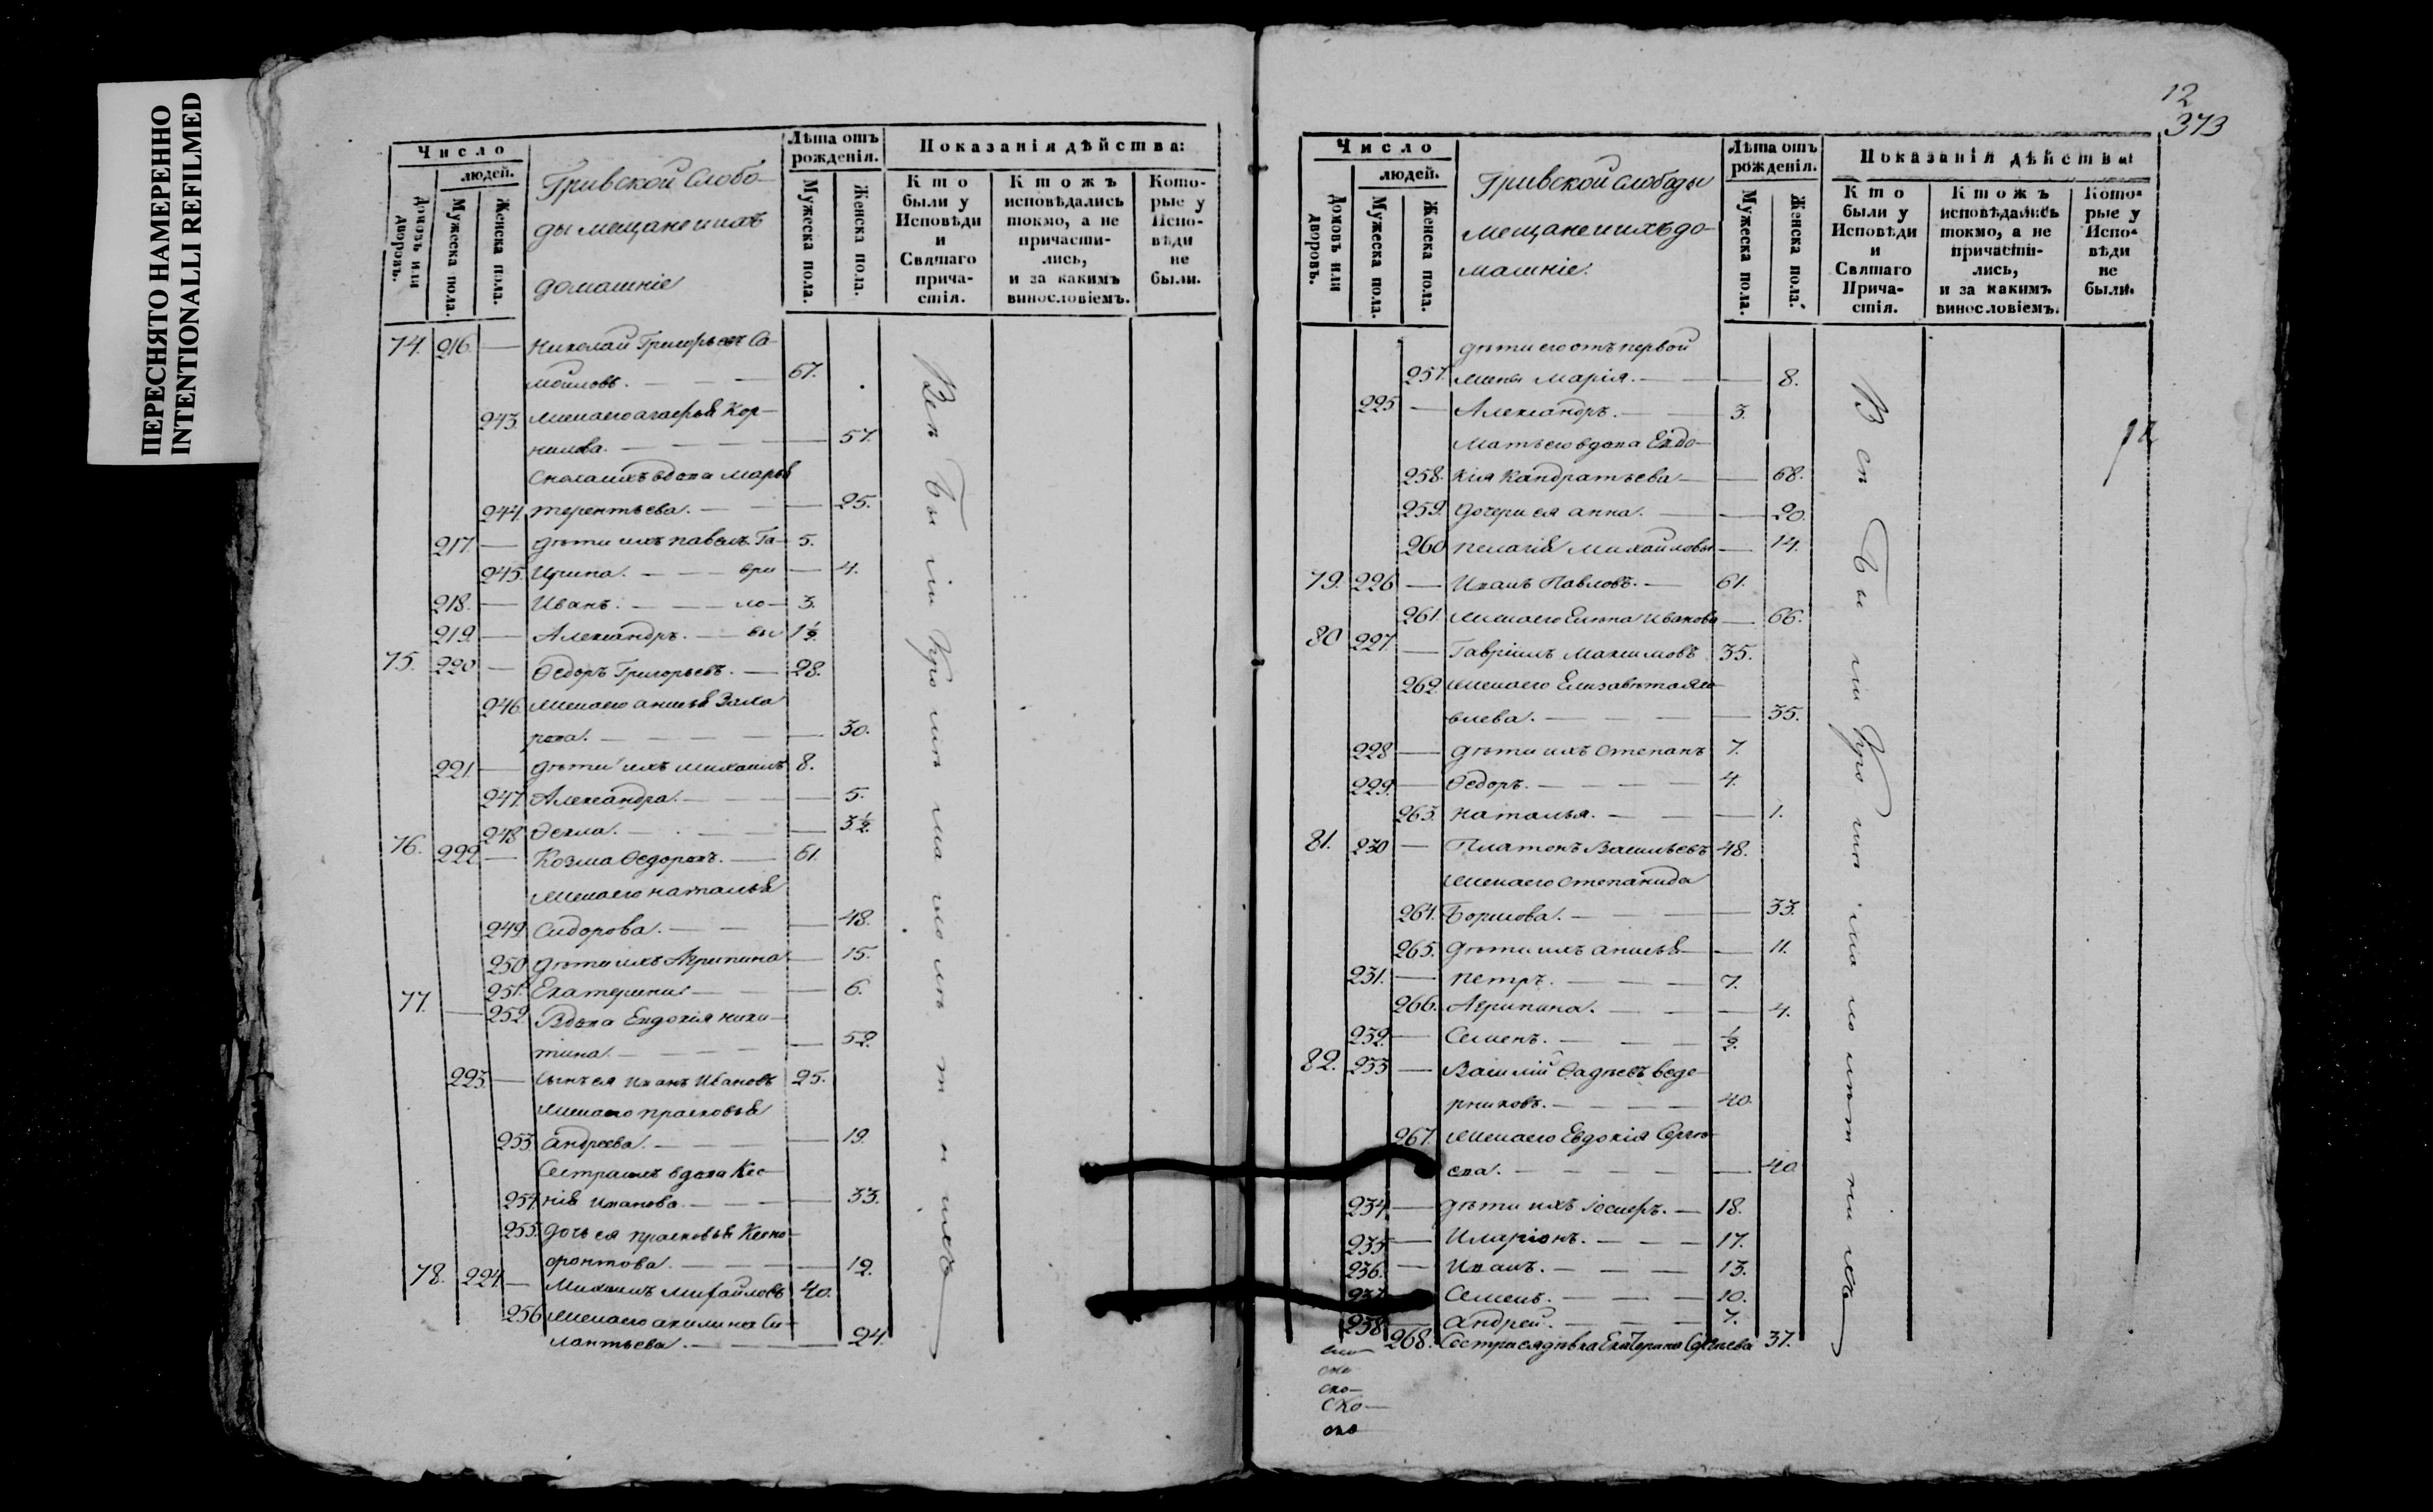 ПЕРЕСНЯТО НАМЕРЕННО
INTENTIONALLI REFILMED
Число
людей.
Домовъ или дворовъ.
Мужеска пола.
Женска пола.
Гривской Слобо-
ды мещане и ихъ
домашніе
Лѣта отъ рожденія.
Мужеска пола.
Женска пола.
Показанія дѣйства:
Кто были у Исповѣди и Святаго причастія.
Ктожъ исповѣдались токмо, а не причастились, и за какимъ винословіемъ.
Которые у Исповѣди не были.
74. 216. — Николай Григорьевъ Са-
мойловъ. — 67.
243. жена его Агафья Кор-
нилова. — 57.
Сноха ихъ вдова Марья
244. терентьева. — 25.
217. — дѣти ихъ павелъ Га- 5.
245. Ирина. — ври — 4.
218. — Иванъ. — ло — 3.
219. — Александръ. — вы 1½.
75. 220 — Ѳедоръ Григорьевъ. — 28.
246. жена его анисья Заха
рова. — 30.
221. — дѣти ихъ михаилъ 8.
247. Александра. — 5.
248 Ѳекла. — 3½.
76. 222. — Козма Ѳедоровъ. — 61.
жена его наталья
249. Сидорова. — 48.
250 дѣти ихъ Агрипина — 15.
251. Екатерина — 6.
77. — 252. Вдова Евдокія ники-
тина. — 52.
223. — сынъ ея Иванъ Ивановъ 25.
жена его прасковья
253. андреева. — 19.
Сестра ихъ вдова Ксе-
254. нія Иванова. — 33.
255. дочь ея прасковья Ксено-
фонтова. — 12.
78. 224. — Михаилъ михайловъ 40.
256 жена его акилина Си-
лантьева. — 24.
12
373
Число
людей.
Домовъ или дворовъ.
Мужеска пола.
Женска пола.
Гривской слободы
мещане и ихъ до-
машніе.
Лѣта отъ рожденія.
Мужеска пола.
Женска пола.
Показанія дѣйства:
Кто были у Исповѣди и Святаго Причастія.
Ктожъ исповѣдались токмо, а не причастились, и за какимъ винословіемъ.
Которые у Исповѣди не были.
дѣти его отъ первой
257. жены Марія. — 8.
225 — Александръ. — 3.
Мать его вдова Евдо-
258. кія Кандратьева — 68.
259. дочери ея анна. — 20.
260 пелагія Михайловы — 14.
79. 226 — Иванъ Павловъ. — 61.
261. жена его Елена Иванова — 66.
80 227. — Гавріилъ Максимовъ 35.
262. жена его Елизавета
— 35.
228 — дѣти ихъ Степанъ 7.
229. — Ѳедоръ. — 4.
263. Наталья. — 1.
81. 230 — Платонъ Васильевъ 48.
жена его Степанида
264. Борисова. — 33.
265. дѣти ихъ анисья — 11.
231. — петръ. — 7.
266. Агрипина. — 4.
232. — Семенъ. — ½.
82. 233 — Василій Ѳадѣевъ веде-
рниковъ. — 40.
267. жена его Евдокія Сергѣ-
ева. — 40
234 — дѣти ихъ іосифъ. — 18.
235 — Иларіонъ. — 17.
236. — Иванъ. — 13.
237 Семенъ. — 10.
238 — андрей. — 7.
268. Сестра ея дѣвка Екатерина Сергеева 37.